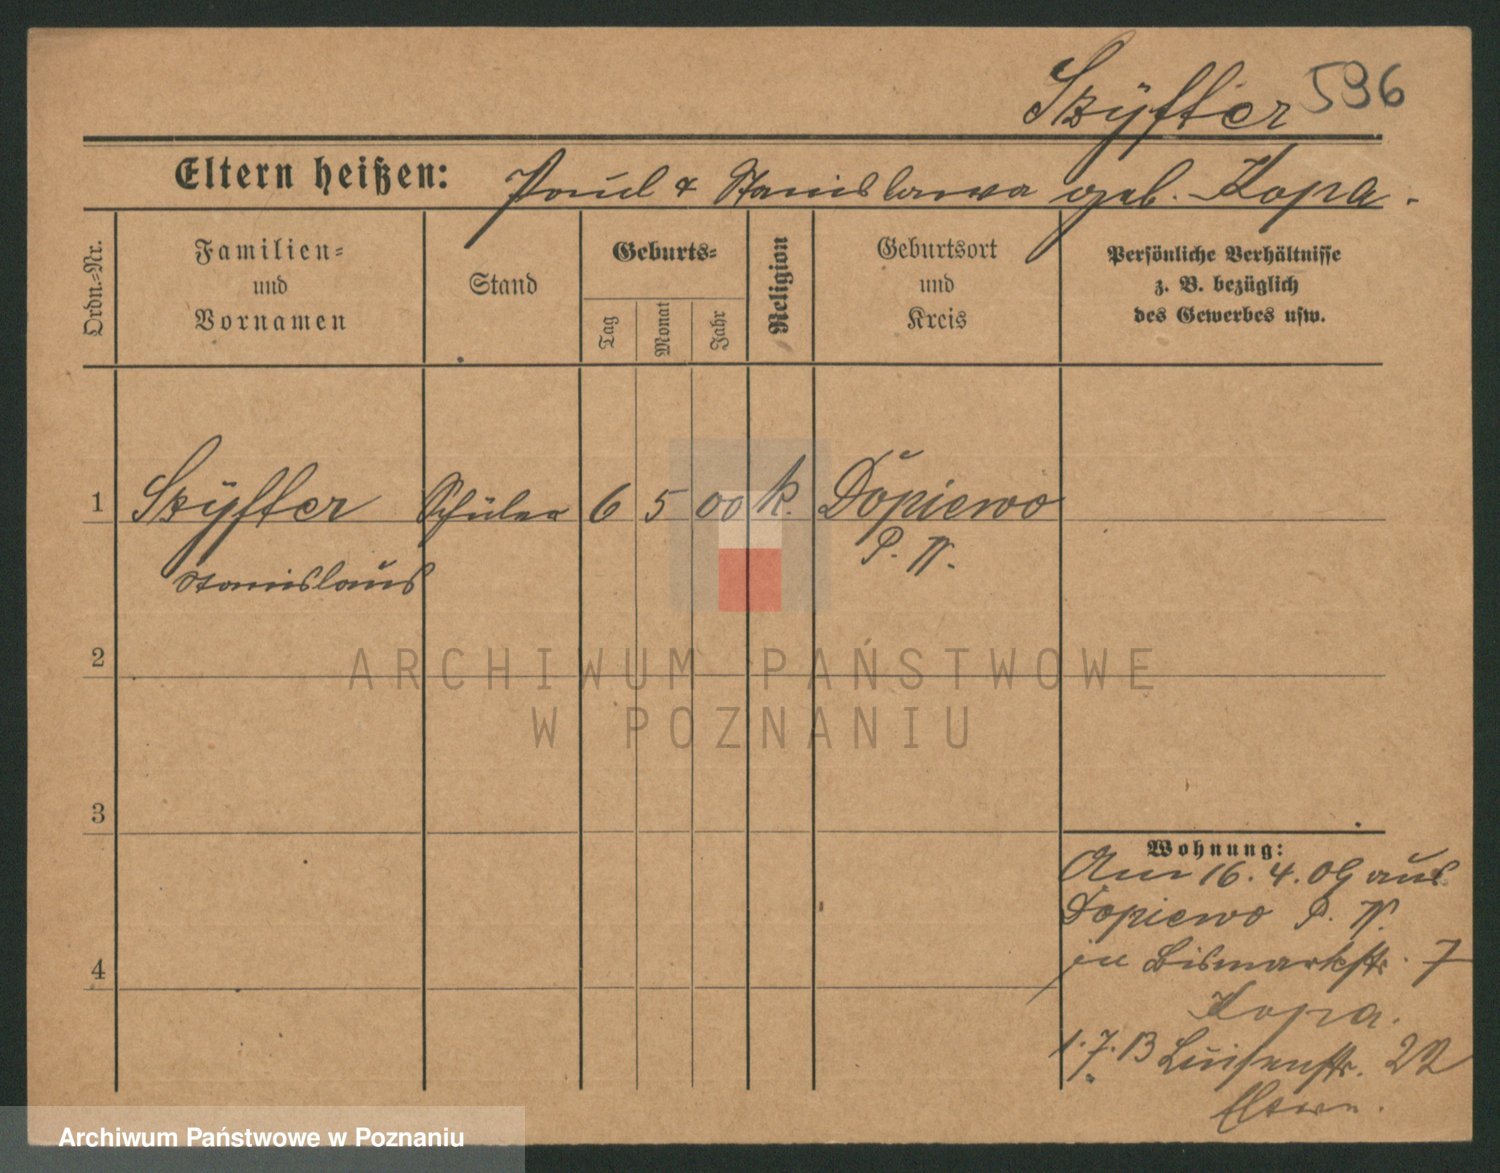 Szÿfter 596
Eltern heißen: Paul & Stanislawa geb. Kopa.
Ordn.-Nr.
Familien-
und
Vornamen
Stand
Geburts-
Tag
Monat
Jahr
Religion
Geburtsort
und
Kreis
Persönliche Verhältnisse
z. B. bezüglich
des Gewerbes usw.
1 Szÿfter Schüler 6 5 00 k. Dopiewo
P. W.
Stanislaus
2
3
4
ARCHIWUM PAŃSTWOWE
W POZNANIU
Wohnung:
Am 16.4.09 aus
Dopiewo P. W.
in Bismarkstr. 7
Kopa.
1.7.13 Luisenstr. 22
Eltern.
Archiwum Państwowe w Poznaniu